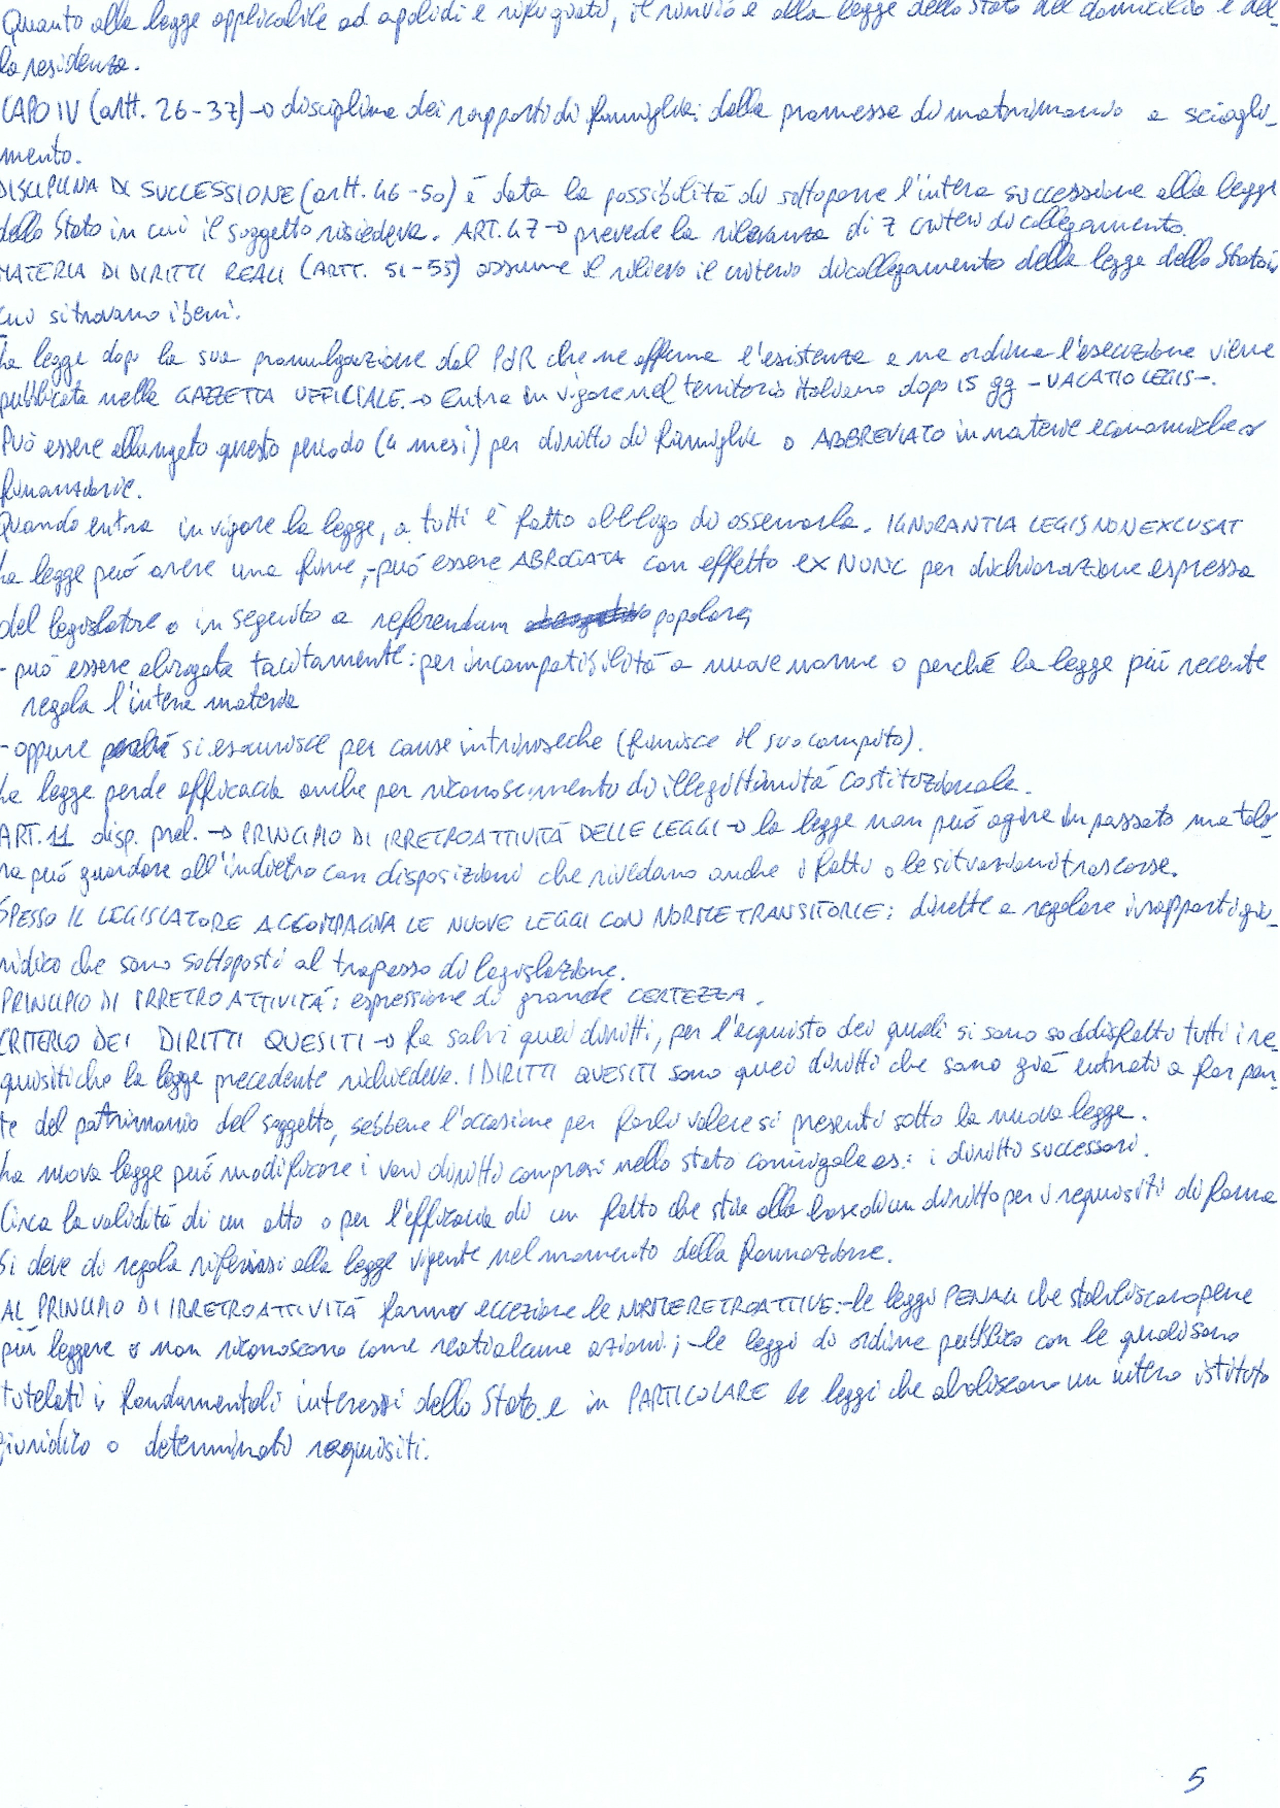 Quanto alla legge applicabile ad apolidi e rifugiati, il rinvio è alla legge dello Stato del domicilio e del-
la residenza.
CAPO IV (artt. 26-37) → disciplina dei rapporti di famiglia: dalla promessa di matrimonio a sciogli-
mento.
DISCIPLINA DI SUCCESSIONE (artt. 46-50) è data la possibilità di sottoporre l'intera successione alla legge
dello Stato in cui il soggetto risiedeva. ART. 47 → prevede la rilevanza di 7 criteri di collegamento.
MATERIA DI DIRITTI REALI (ARTT. 51-55) assume il rilievo il criterio di collegamento della legge dello Stato in
cui si trovano i beni.
La legge dopo la sua promulgazione dal PdR che ne afferma l'esistenza e ne ordina l'esecuzione viene
pubblicata nella GAZZETTA UFFICIALE. → Entra in vigore nel territorio italiano dopo 15 gg - VACATIO LEGIS -.
Può essere allungato questo periodo (4 mesi) per diritto di famiglia o ABBREVIATO in materie economiche o
finanziarie.
Quando entra in vigore la legge, a tutti è fatto obbligo di osservarla. IGNORANTIA LEGIS NON EXCUSAT
La legge può avere una fine, - può essere ABROGATA con effetto ex NUNC per dichiarazione espressa
del legislatore o in seguito a referendum popolare;
- può essere abrogata tacitamente: per incompatibilità a nuove norme o perché la legge più recente
regola l'intera materia
- oppure si esaurisce per cause intrinseche (finisce il suo compito).
La legge perde efficacia anche per riconoscimento di illegittimità costituzionale.
ART. 11 disp. prel. → PRINCIPIO DI IRRETROATTIVITÀ DELLE LEGGI → la legge non può agire in passato ma talo-
ra può guardare all'indietro con disposizioni che rivedano anche i fatti o le situazioni trascorse.
SPESSO IL LEGISLATORE ACCOMPAGNA LE NUOVE LEGGI CON NORME TRANSITORIE: dirette a regolare i rapporti giu-
ridico che sono sottoposti al trapasso di legislazione.
PRINCIPIO DI IRRETROATTIVITÀ: espressione di grande CERTEZZA.
CRITERIO DEI DIRITTI QUESITI → fa salvi quei diritti, per l'acquisto dei quali si sono soddisfatti tutti i re-
quisiti che la legge precedente richiedeva. I DIRITTI QUESITI sono quei diritti che sono già entrati a far par-
te del patrimonio del soggetto, sebbene l'occasione per farli valere si presenti sotto la nuova legge.
La nuova legge può modificare i vari diritti compresi nello stato coniugale es: i diritti successori.
Circa la validità di un atto o per l'efficacia di un fatto che stia alla base di un diritto per i requisiti di forma
si deve di regola riferirsi alla legge vigente nel momento della formazione.
AL PRINCIPIO DI IRRETROATTIVITÀ fanno eccezione le NORME RETROATTIVE: - le leggi PENALI che stabiliscano pene
più leggere o non riconoscono come reati alcune azioni; - le leggi di ordine pubblico con le quali sono
tutelati i fondamentali interessi dello Stato e in PARTICOLARE le leggi che aboliscono un intero istituto
giuridico o determinati requisiti.
5